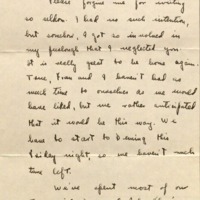 Please forgive me for writing
so seldom. I had no such intention,
but somehow, I got so involved in
my furlough that I neglected you.
It is really great to be home again.
Fran and I haven't had as
much time to ourselves as we would
have liked, but we rather anticipated
that it would be this way. We
have to start to Denning this
Friday night, so we haven't much
time left.
We've spent most of our